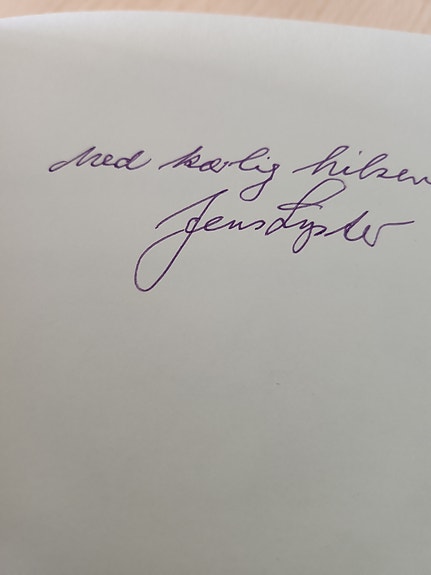 Med kærlig hilsen
Jens Lyster